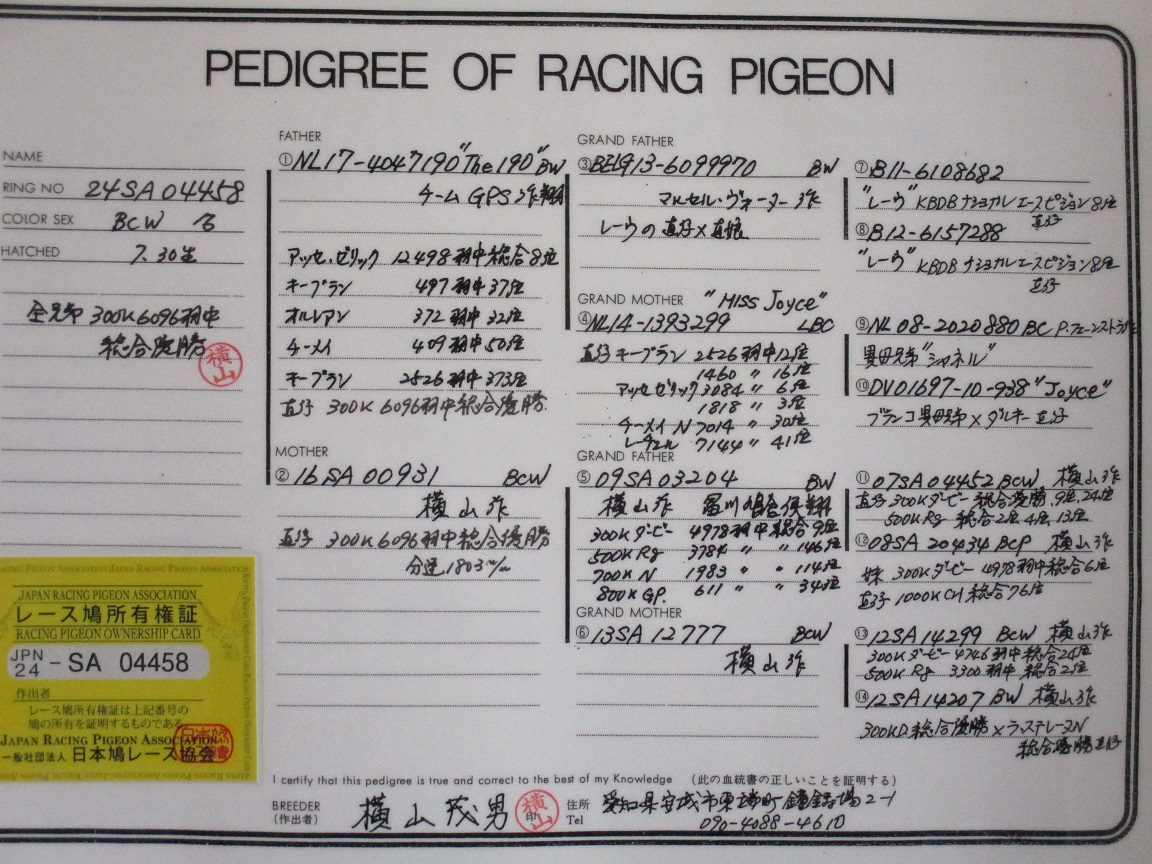 PEDIGREE OF RACING PIGEON
NAME
RING NO 24SA04458
COLOR SEX BCW ♂
HATCHED 7.30生
全兄弟 300K6096羽中
総合優勝
横山
JAPAN RACING PIGEON ASSOCIATION
レース鳩所有権証
RACING PIGEON OWNERSHIP CARD
JPN
24 - SA 04458
作出者
レース鳩所有権証は上記番号の
鳩の所有を証明するものである
JAPAN RACING PIGEON ASSOCIATION
一般社団法人 日本鳩レース協会
FATHER
①NL17-4047190 "The 190" BW
チームGPS作翔
アッセ・ゼリック 12498羽中総合8位
キープラン 497羽中37位
オルレアン 372羽中32位
チーメイ 409羽中50位
キープラン 2526羽中373位
直仔 300K 6096羽中総合優勝
MOTHER
②16SA 00931 BCW
横山作
直仔 300K6096羽中総合優勝
分速1803m/m
GRAND FATHER
③BELG13-6099970 BW
マルセル・ヴォーター作
レーウの直仔×直娘
GRAND MOTHER "MISS Joyce"
④NL14-1393299 LBC
直仔キープラン 2526羽中12位
1460 〃 16位
アッセゼリック3084 〃 6位
1818 〃 3位
チーメイN7014 〃 30位
レーチェル 7144 〃 41位
GRAND FATHER
⑤09SA03204 BW
横山作
300Kダービー 4978羽中総合9位
500Rg 3784 〃 〃 146位
700KN 1983 〃 〃 114位
800KGP. 611 〃 〃 34位
GRAND MOTHER
⑥13SA12777 BCW
横山作
⑦B11-6108682
"レーウ" KBDBナショナルエースピジョン8位
直仔
⑧B12-6157288
"レーウ" KBDBナショナルエースピジョン8位
直仔
⑨NL08-2020880 BC
異母兄弟"シャネル"
⑩DV01697-10-938 "Joyce"
ブランコ異母兄弟×ダルキー直仔
⑪07SA04452 BCW 横山作
直仔300Kダービー総合優勝.9位.24位
500Rg 総合2位4位13位
⑫08SA20434 BCP 横山作
妹 300Kダービー 4978羽中総合6位
直仔 1000KCH総合76位
⑬12SA14299 BCW 横山作
300Kダービー4746羽中総合24位
500K Rg 3300羽中総合2位
⑭12SA14207 BW 横山作
300KD.総合優勝×ラストレースN
総合優勝直仔
I certify that this pedigree is true and correct to the best of my Knowledge (此の血統書の正しいことを証明する)
BREEDER
(作出者) 横山茂男 横山印
住所 愛知県安城市東端町鐘鋳場2-1
Tel 090-4088-4610